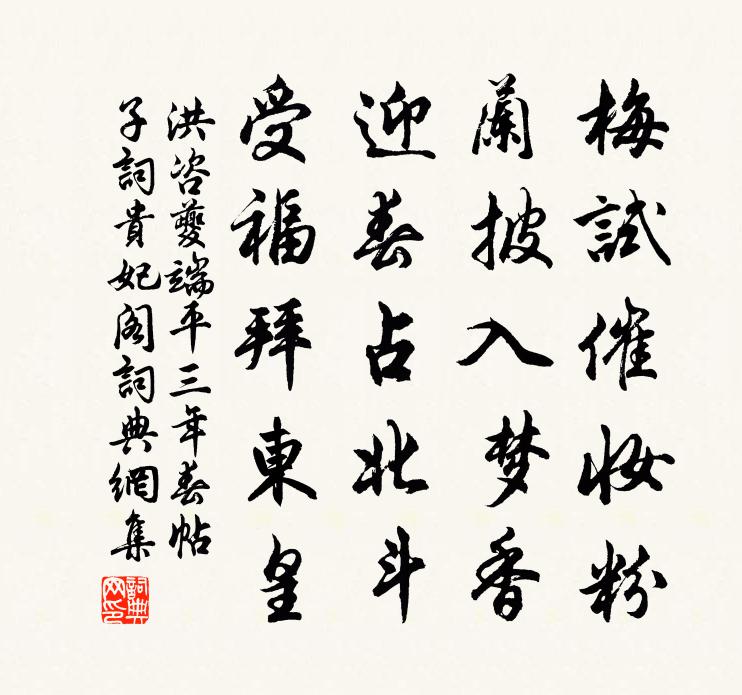 梅試催妝粉
蘭披入梦香
迎春占北斗
受福拜東皇
洪咨夔端平三年春帖
子詞貴妃阁詞典網集
詞典
网印